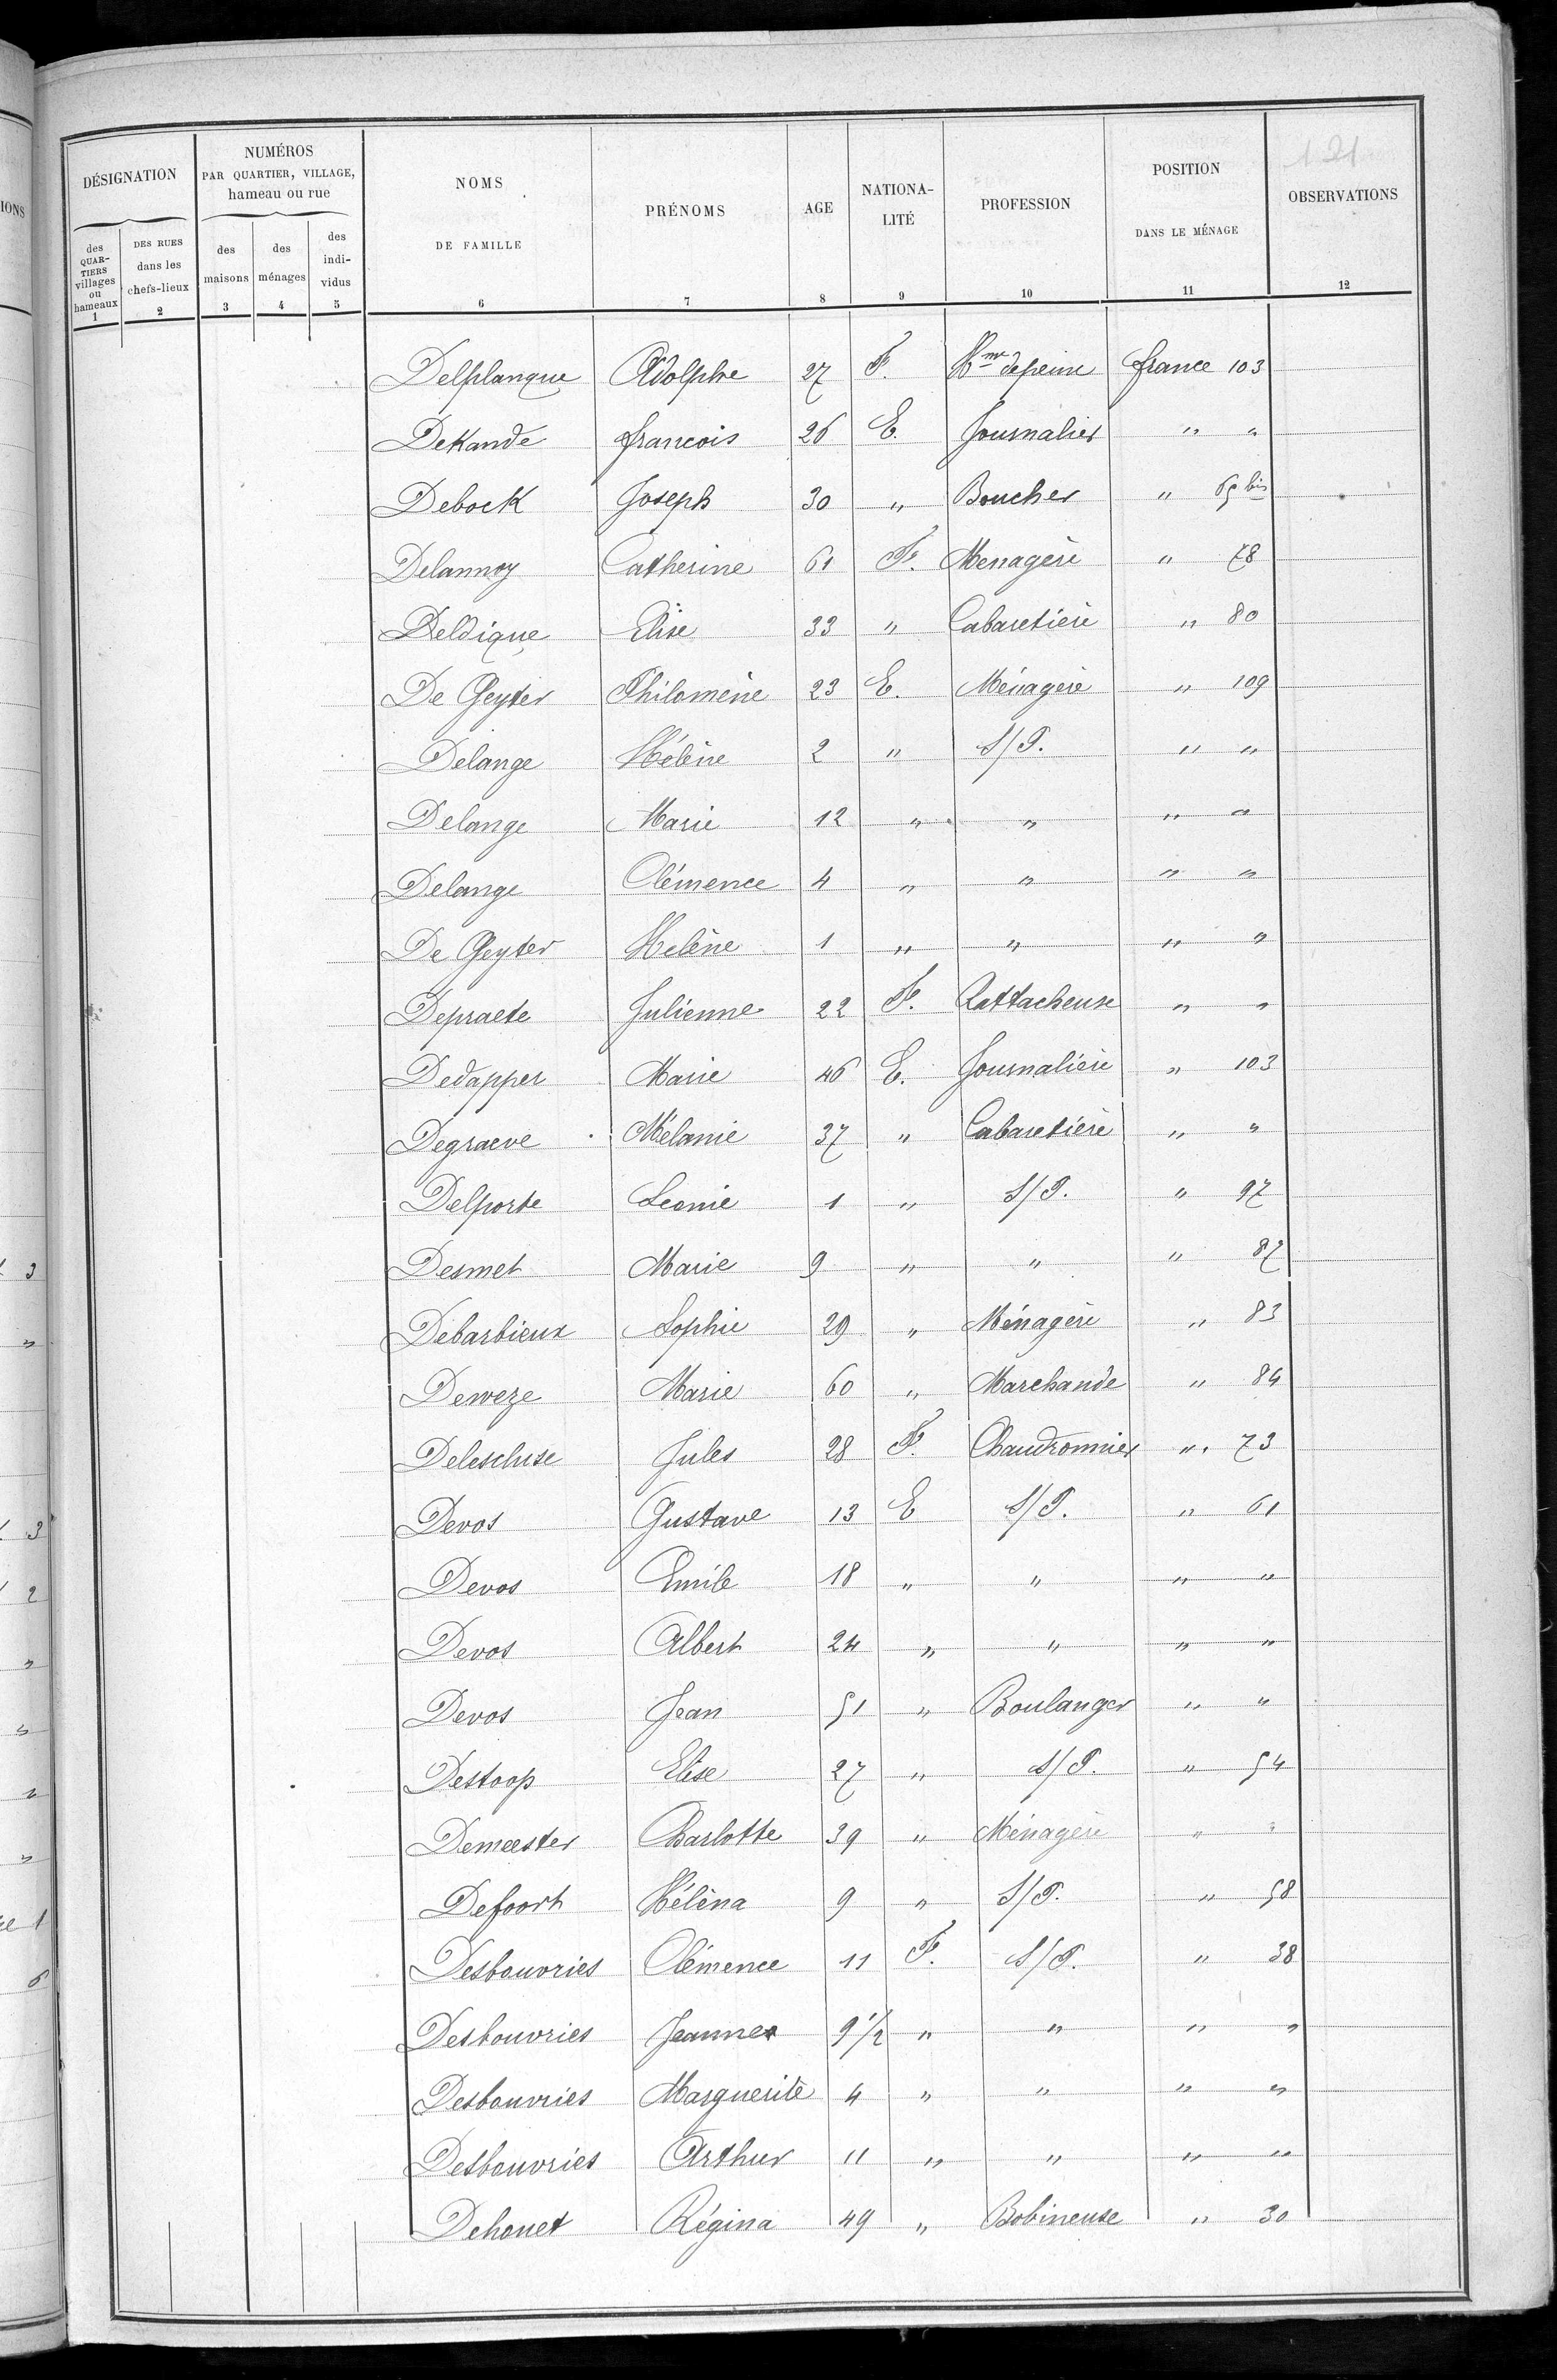 121
DÉSIGNATION
NUMÉROS
PAR QUARTIER, VILLAGE,
hameau ou rue
NOMS
DE FAMILLE
PRÉNOMS
AGE
NATIONA-
LITÉ
PROFESSION
POSITION
DANS LE MÉNAGE
OBSERVATIONS
des QUAR-TIERS villages ou hameaux
DES RUES dans les chefs-lieux
des maisons
des ménages
des indi-vidus
1 2 3 4 5 6 7 8 9 10 11 12
Delplanque Adolphe 27 F. Hme de peine france 103
Dekande francois 26 E. Journalier " "
Debock Joseph 30 " Boucher " 65 bis
Delannoy Catherine 61 F. Menagère " 78
Deldique Elise 33 " Cabaretière " 80
De Geyter Philomène 23 E. Ménagère " 109
Delange Hélène 2 " S/P. " "
Delange Marie 12 " " " "
Delange Clémence 4 " " " "
De Geyter Helène 1 " " " "
Depraete Julienne 22 F. Rattacheuse " "
Dedapper Marie 46 E. Journalière " 103
Degraeve Mélanie 37 " Cabaretière " "
Delporte Leonie 1 " S/P. " 97
Desmet Marie 9 " " " 87
Debarbieux Sophie 29 " Ménagère " 83
Deweze Marie 60 " Marchande " 84
Delescluse Jules 28 F. Chaudronnier " 73
Devos Gustave 13 E S/P. " 61
Devos Emile 18 " " " "
Devos Albert 24 " " " "
Devos Jean 51 " Boulanger " "
Destoop Elise 27 " S/P. " 54
Demeester Charlotte 39 " Ménagère " "
Defoort Héléna 9 " S/P. " 58
Desbouvries Clémence 11 F. S/P. " 38
Desbouvries Jeanne 9 1/2 " " " "
Desbouvries Marguerite 4 " " " "
Desbouvries Arthur 11 " " " "
Dehouet Régina 49 " Bobineuse " 30